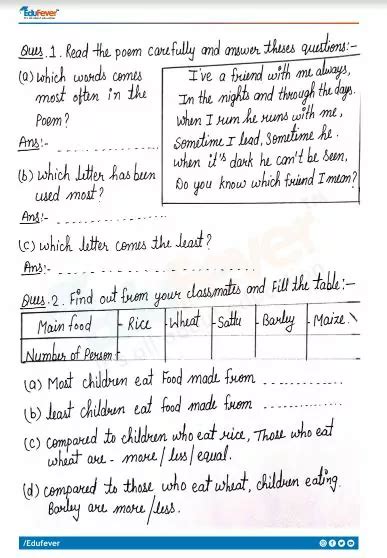 EduFever
Ques.1. Read the poem carefully and answer theses questions:-
(a) which words comes
most often in the
Poem?
Ans:-
(b) which letter has been
used most?
Ans:-
I've a friend with me always,
In the nights and through the days.
When I run he runs with me,
Sometime I lead, Sometime he.
when it's dark he can't be seen,
Do you know which friend I mean?
(c) which letter comes the least?
Ans:-
Ques.2. Find out from your classmates and Fill the table:-
Main food - Rice - Wheat - Sattu - Barley - Maize.
Number of Person
(a) Most children eat Food made from
(b) least children eat food made from
(c) compared to children who eat rice, Those who eat
wheat are - more / less / equal.
(d) compared to those who eat wheat, children eating.
Barley are more / less.
/Edufever